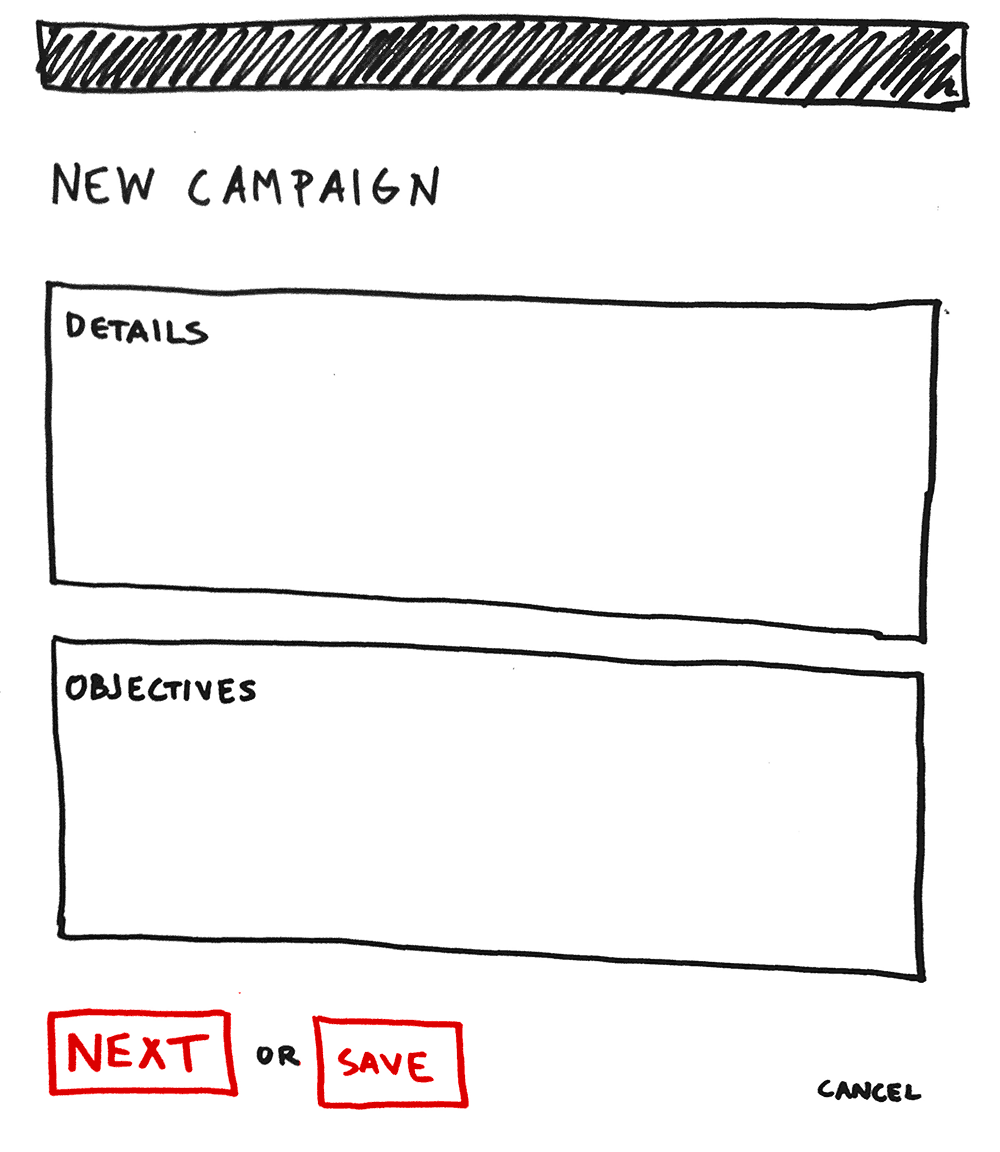 NEW CAMPAIGN
DETAILS
OBJECTIVES
NEXT OR SAVE
CANCEL